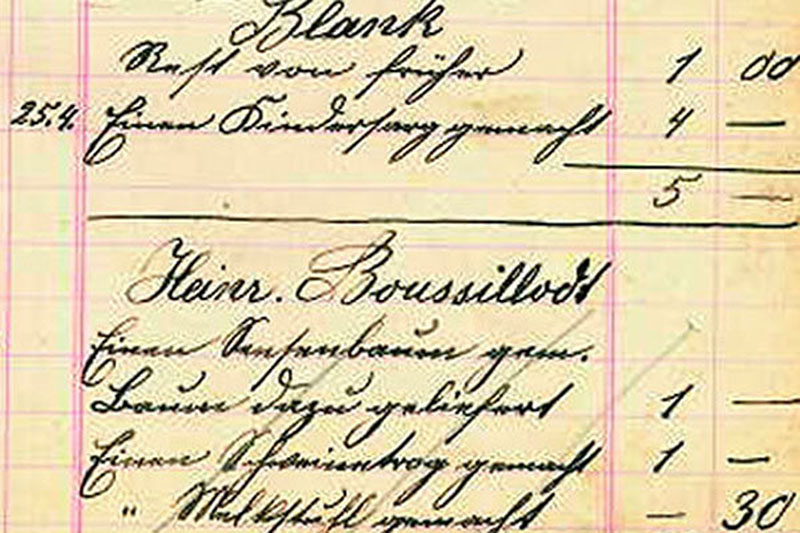 Blank
Rest von früher 1 00
25.4. Einen Kindersarg gemacht 4 —
5 —
Heinr. Boussillodt
Einen Sensenbaum gem.
Baum dazu geliefert 1 —
Einen Schweinetrog gemacht 1 —
" Melkstuhl gemacht — 30